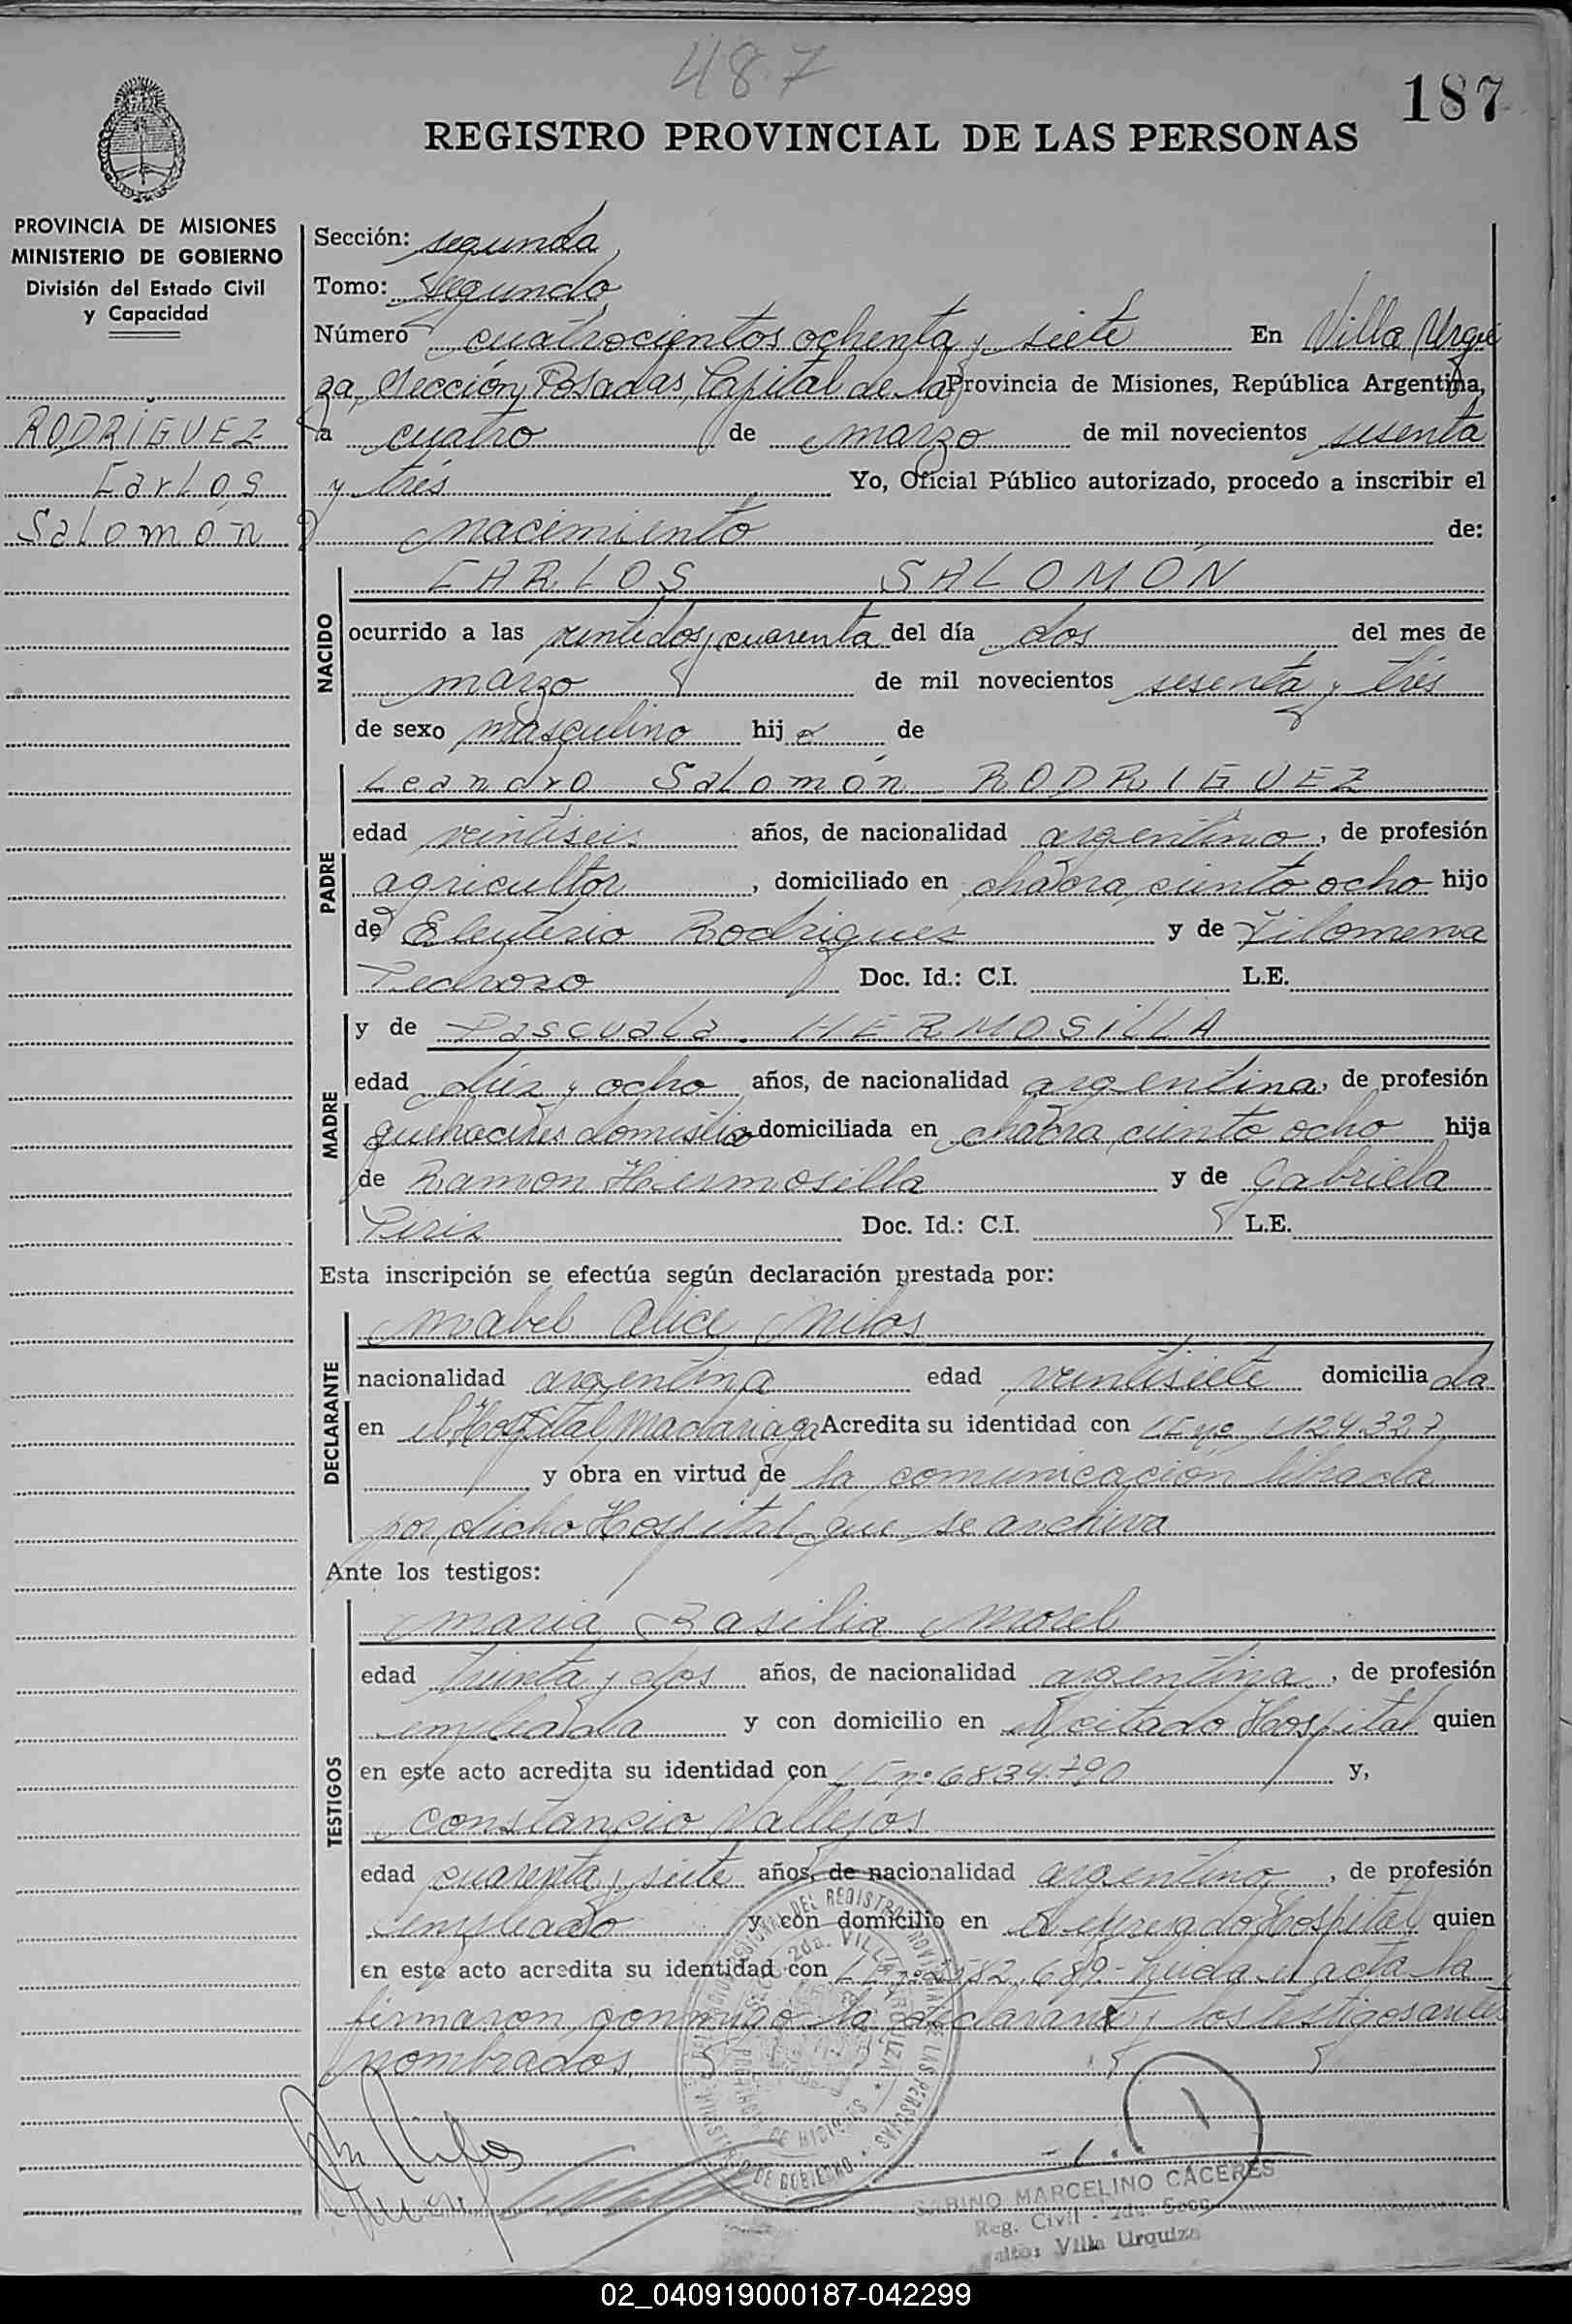 487
187
REGISTRO PROVINCIAL DE LAS PERSONAS
PROVINCIA DE MISIONES
MINISTERIO DE GOBIERNO
División del Estado Civil
y Capacidad
RODRIGUEZ
Carlos
Salomón
Sección: segunda
Tomo: Segundo
Número cuatrocientos ochenta y siete En Villa Urqui
za, Sección Posadas, Capital de la Provincia de Misiones, República Argentina,
a cuatro de marzo de mil novecientos sesenta
y trés Yo, Oficial Público autorizado, procedo a inscribir el
nacimiento de:
NACIDO
CARLOS SALOMÓN
ocurrido a las veintidos y cuarenta del día dos del mes de
marzo de mil novecientos sesenta y trés
de sexo masculino hijo de
PADRE
Leandro Salomón RODRIGUEZ
edad veintiseis años, de nacionalidad argentino, de profesión
agricultor, domiciliado en chacra ciento ocho hijo
de Eleuterio Rodriguez y de Filomena
Pedrozo Doc. Id.: C.I. L.E.
MADRE
y de Pascuala HERMOSILLA
edad diez y ocho años, de nacionalidad argentina, de profesión
quehaceres domiciliada en chacra ciento ocho hija
de Ramon Hermosilla y de Gabriela
Piriz Doc. Id.: C.I. L.E.
Esta inscripción se efectúa según declaración prestada por:
DECLARANTE
Mabel Alice Milos
nacionalidad argentina edad veintisiete domiciliada
en el Hospital Madariaga Acredita su identidad con
y obra en virtud de la comunicación librada
por dicho Hospital que se archiva
Ante los testigos:
TESTIGOS
Maria Basilia Morel
edad treinta y dos años, de nacionalidad argentina, de profesión
empleada y con domicilio en el citado Hospital quien
en este acto acredita su identidad con nº 6834.790 y,
Constancio Vallejos
edad cuarenta y siete años, de nacionalidad argentino, de profesión
empleado y con domicilio en el expresado Hospital quien
en este acto acredita su identidad con leida el acta la
firmaron conmigo la declarante y los testigos antes
nombrados.
2da. VILLA URQUIZA
PROVINCIA DE MISIONES
MINISTERIO DE GOBIERNO
SABINO MARCELINO CÁCERES
Reg. Civil - 2da. Secc.
Villa Urquiza
02_040919000187-042299